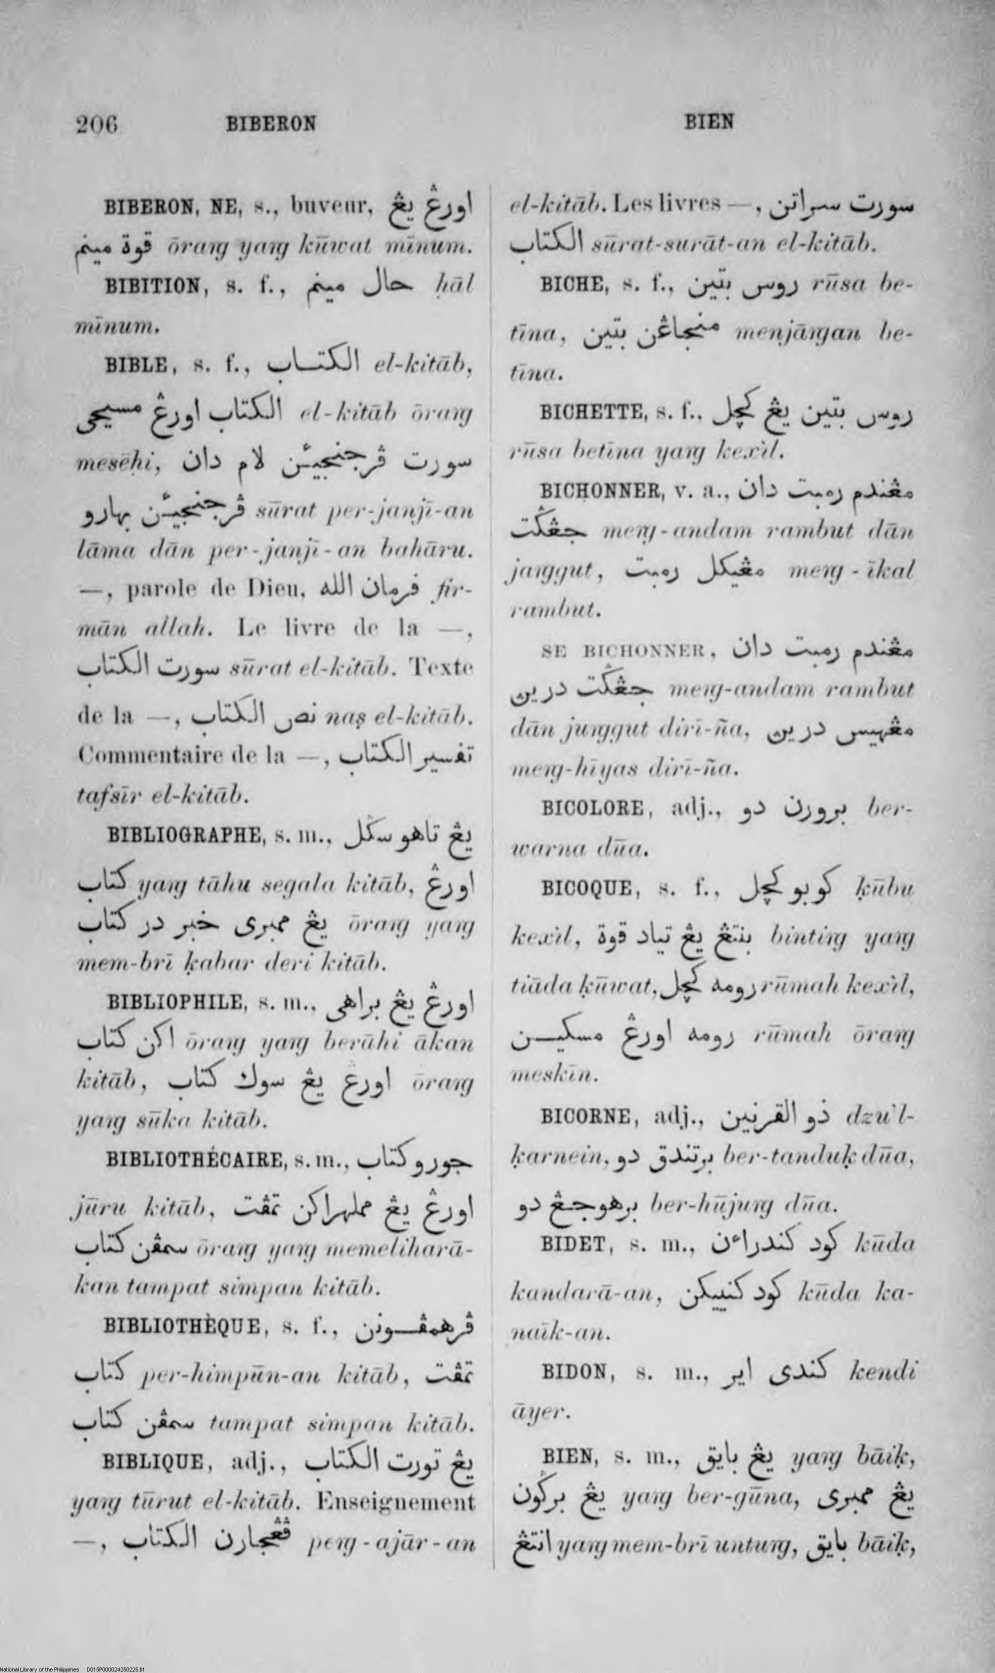 206 BIBERON BIEN
BIBERON, NE, s., buveur, اورڠ يڠ
قوة مينم ōraṉg yaṉg kūwat mīnum.
BIBITION, s. f., حال مينم ḥāl
mīnum.
BIBLE, s. f., الكتاب el-kitāb,
الكتاب اورڠ مسيحي el-kitāb ōraṉg
meseḥi, سورت ڤرجنجيئن لام دان
ڤرجنجيئن بهارو sūrat per-janjī-an
lāma dān per-janjī-an bahāru.
—, parole de Dieu, فرمان الله fir-
mān allah. Le livre de la —,
سورت الكتاب sūrat el-kitāb. Texte
de la —, نص الكتاب naṣ el-kitāb.
Commentaire de la —, تفسير الكتاب
tafsīr el-kitāb.
BIBLIOGRAPHE, s. m., يڠ تاهو سݢل
كتاب yaṉg tāhu segala kitāb, اورڠ
يڠ ممبري خبر در كتاب ōraṉg yaṉg
mem-brī ḳabar deri kitāb.
BIBLIOPHILE, s. m., اورڠ يڠ براهي
اكن كتاب ōraṉg yaṉg berāhi ākan
kitāb, اورڠ يڠ سوك كتاب ōraṉg
yaṉg sūka kitāb.
BIBLIOTHÉCAIRE, s. m., جورو كتاب
jūru kitāb, اورڠ يڠ مملهراكن تمڤت
سمڤن كتاب ōraṉg yaṉg memeliharā-
kan tampat simpan kitāb.
BIBLIOTHÈQUE, s. f., ڤرهمڤونن
كتاب per-himpūn-an kitāb, تمڤت
سمڤن كتاب tampat simpan kitāb.
BIBLIQUE, adj., يڠ تورت الكتاب
yaṉg tūrut el-kitāb. Enseignement
—, ڤڠجارن الكتاب peṉg-ajār-an
el-kitāb. Les livres —, سورت سراتن
الكتاب sūrat-surāt-an el-kitāb.
BICHE, s. f., روس بتين rūsa be-
tīna, منجاڠن بتين menjāṉgan be-
tīna.
BICHETTE, s. f., روس بتين يڠ كچل
rūsa betīna yaṉg kexìl.
BICHONNER, v. a., مڠندم رمبت دان
جڠݢت meṉg-andam rambut dān
jaṉggut, مڠيكل رمبت meṉg-īkal
rambut.
SE BICHONNER, مڠندم رمبت دان
جڠݢت درين meṉg-andam rambut
dān juṉggut dirī-ña, مڠهيس درين
meṉg-hīyas dirī-ña.
BICOLORE, adj., برورن دو ber-
warna dūa.
BICOQUE, s. f., كوبو كچل ḳūbu
kexìl, بنتڠ يڠ تياد قوة bintiṉg yaṉg
tiāda ḳūwat, رومه كچل rūmah kexìl,
رومه اورڠ مسكين rūmah ōraṉg
meskīn.
BICORNE, adj., ذو القرنين dzu'l-
ḳarnein, برتندق دو ber-tanduḳ dūa,
برهوجڠ دو ber-hūjuṉg dūa.
BIDET, s. m., كود كندراءن kūda
kandarā-an, كود كنييكن kūda ka-
naīk-an.
BIDON, s. m., كندي اير kendi
āyer.
BIEN, s. m., يڠ بايق yaṉg bāiḳ,
يڠ برݢون yaṉg ber-gūna, يڠ ممبري
انتڠ yaṉg mem-brī untuṉg, بايق bāiḳ,
National Library of the Philippines